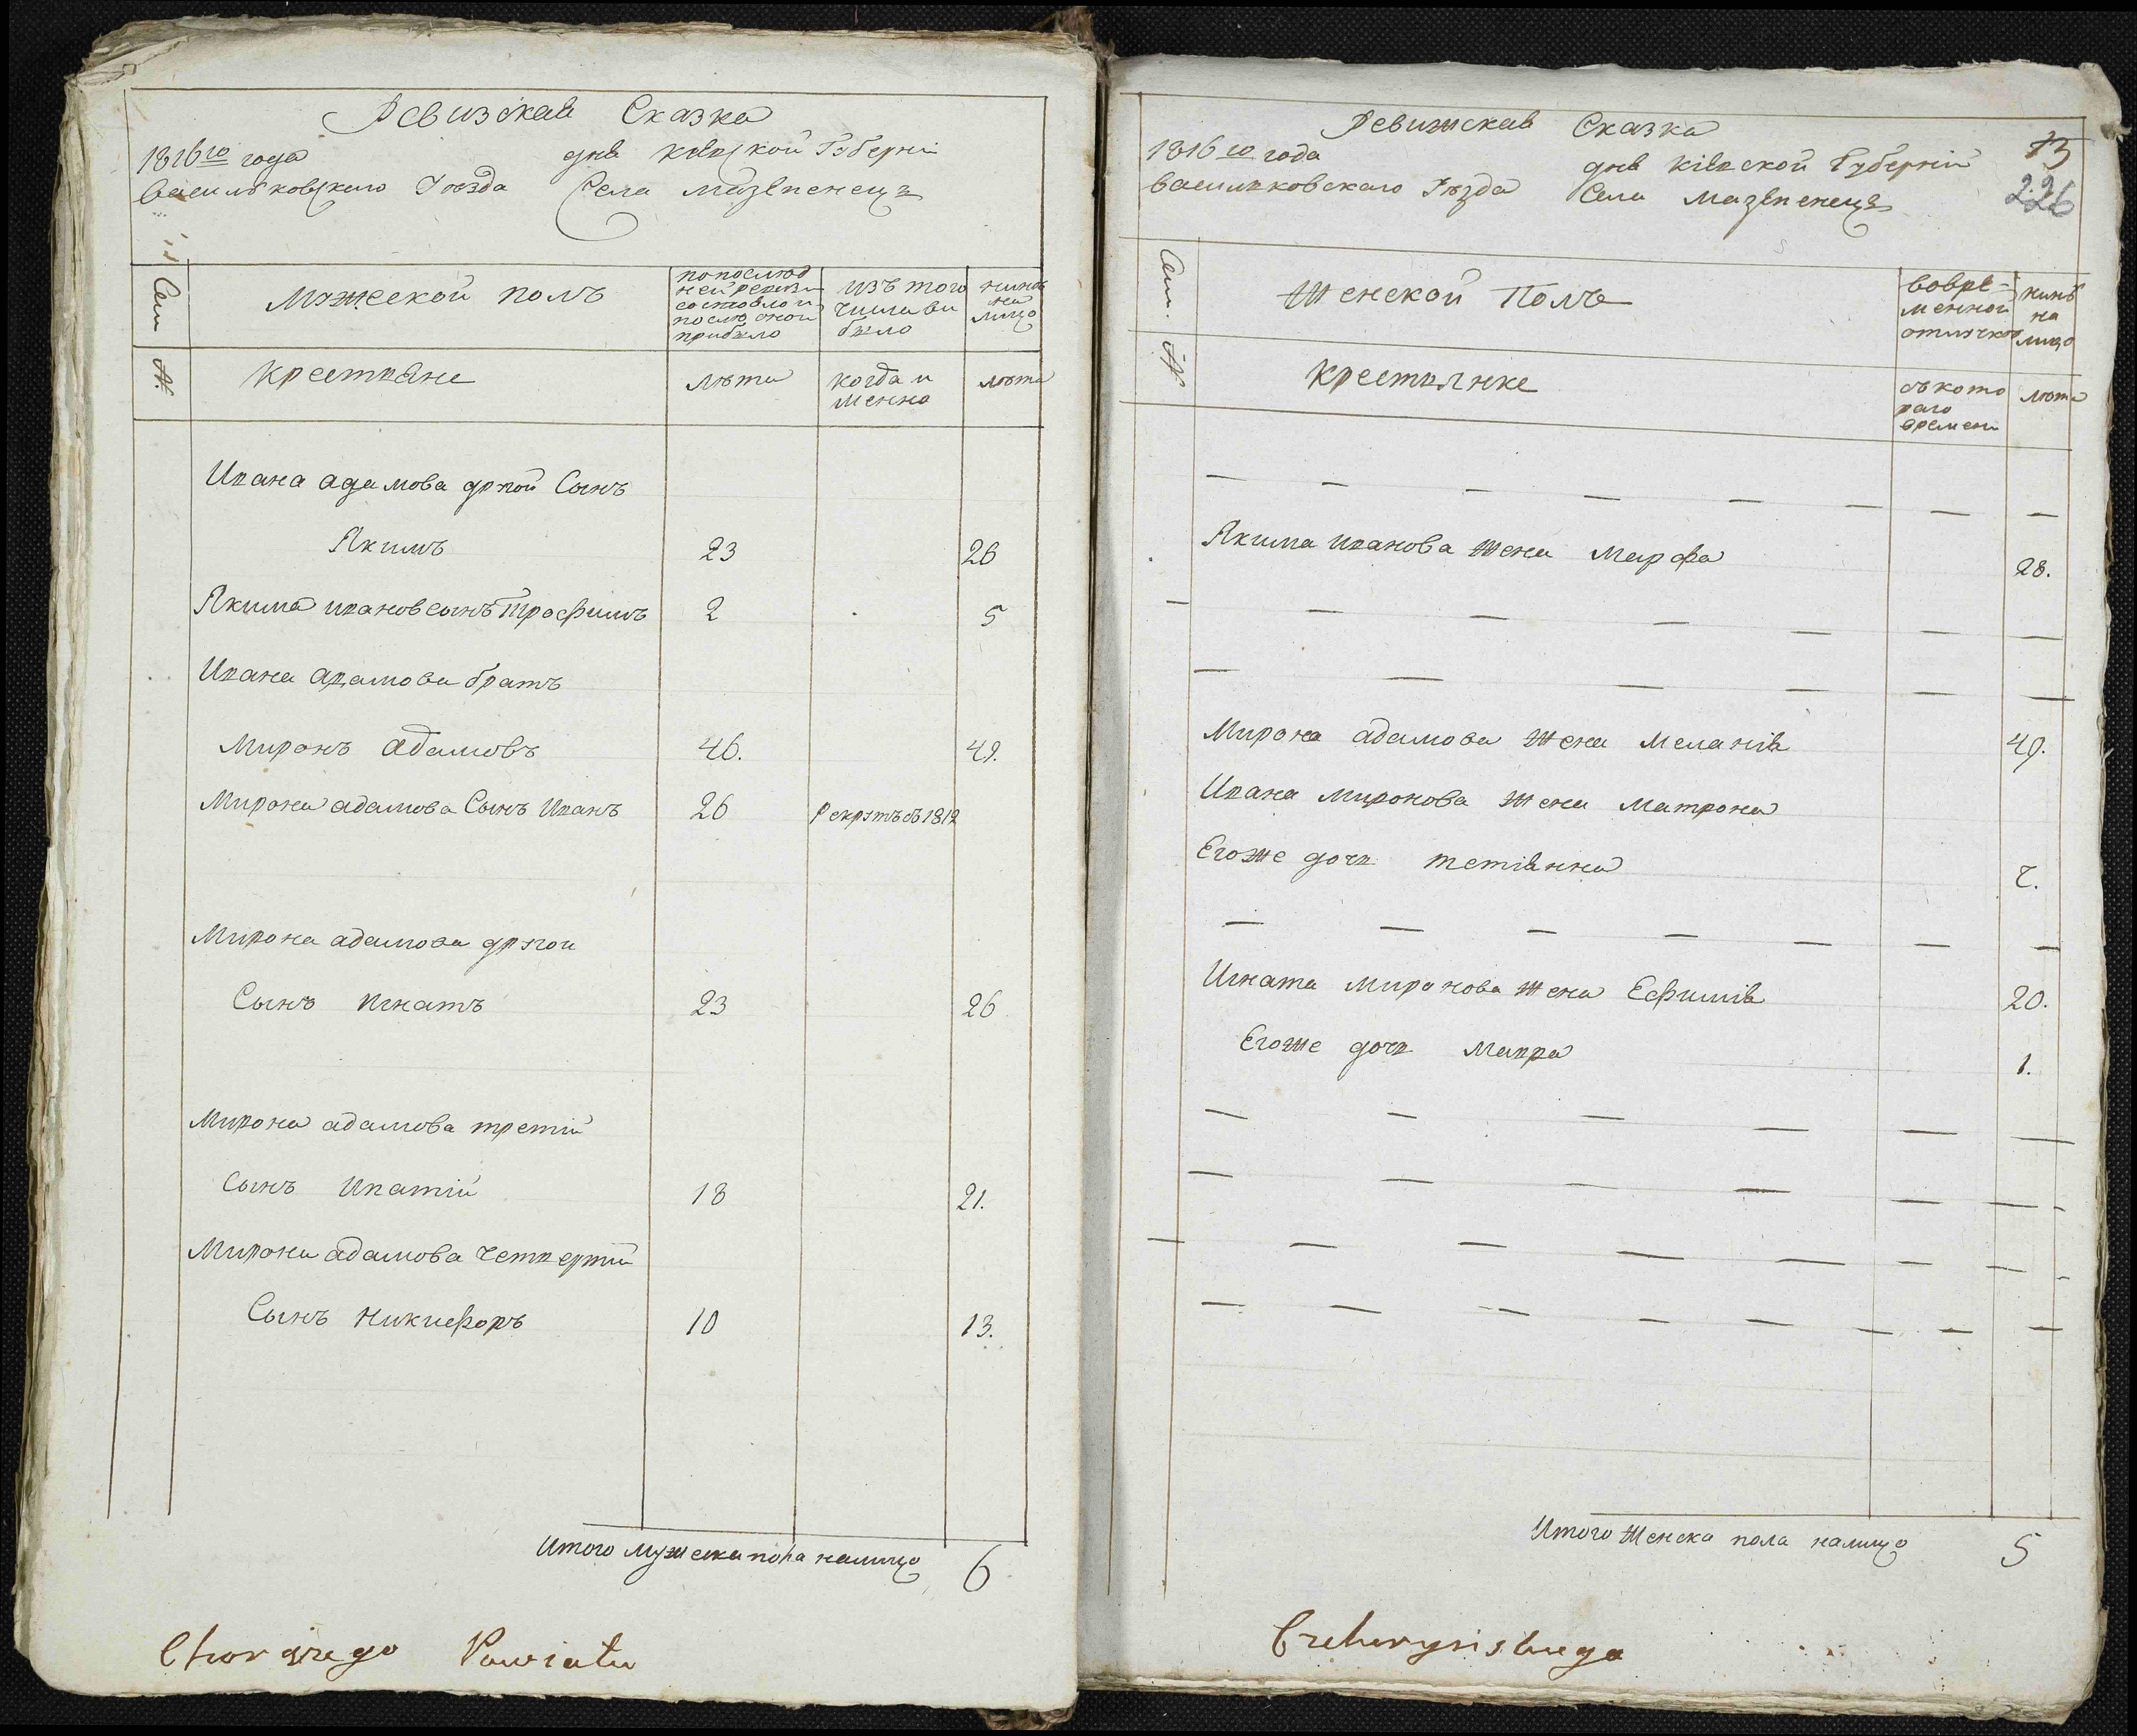 Ревизская Сказка
1816го года дня Кіевской Губерніи
васильковскаго Уѣзда Села Мазепенецъ
Сем №
Мужеской полъ
попослѣд
ней ревизи
состояло и
послѣ оной
прибыло
изъ того
числа вы
было
нинѣ
на
лицо
крестьяне
лѣта
когда и
менно
лѣта
Ивана адамова другой Сынъ
Якимъ 23 26
Якима иванов сынъ Трофимъ 2 5
Ивана адамова братъ
Миронъ адамовъ 46. 49.
Мирона адамова Сынъ Иванъ 26 рекрутъ въ 1812
Мирона адамова другои
Сынъ игнатъ 23 26
Мирона адамова третіи
Сынъ Ипатіи 18 21.
Мирона адамова четвертіи
Сынъ никифоръ 10 13.
Итого мужеска пола налицо 6
Chorążego Powiatu
Ревижская Сказка
1816го года дня Кіевской Губерніи
васильковскаго Уѣзда Села Мазепенецъ
13
226
Сем. №
Женской Полъ
вовре-
менной
отлучке
нинѣ
на
лицо
крестьянке
съ кото
раго
времени
лѣта
— — — — — — — —
Якима иванова жена Марфа 28.
— — — — — — —
— — — — — —
Мирона адамова жена Меланія 49.
Ивана миронова жена матрона
Егоже дочь тетіянна 7.
— — — — — — —
Игната миронова жена Ефимія 20.
Егоже дочь мавра 1.
— — — — — —
— — — — — — -
— — — — — — — -
— — — — — — — —
Итого женска пола налицо 5